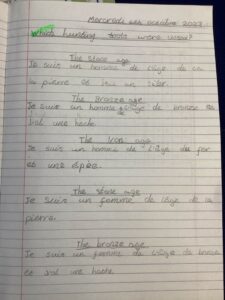 Mercredi octobre 2023
Which hunting tools were used?
The stone age
Je suis un homme de l'âge de la
la pierre et un silex.
The Bronze age
Je suis un homme de l'âge de bronze et
une hache.
The Iron age
Je suis un homme de l'âge du fer
es une épée.
The stone age
Je suis un femme de l'âge de la
pierre.
The bronze age
Je suis un femme du l'âge du bronze
une hache